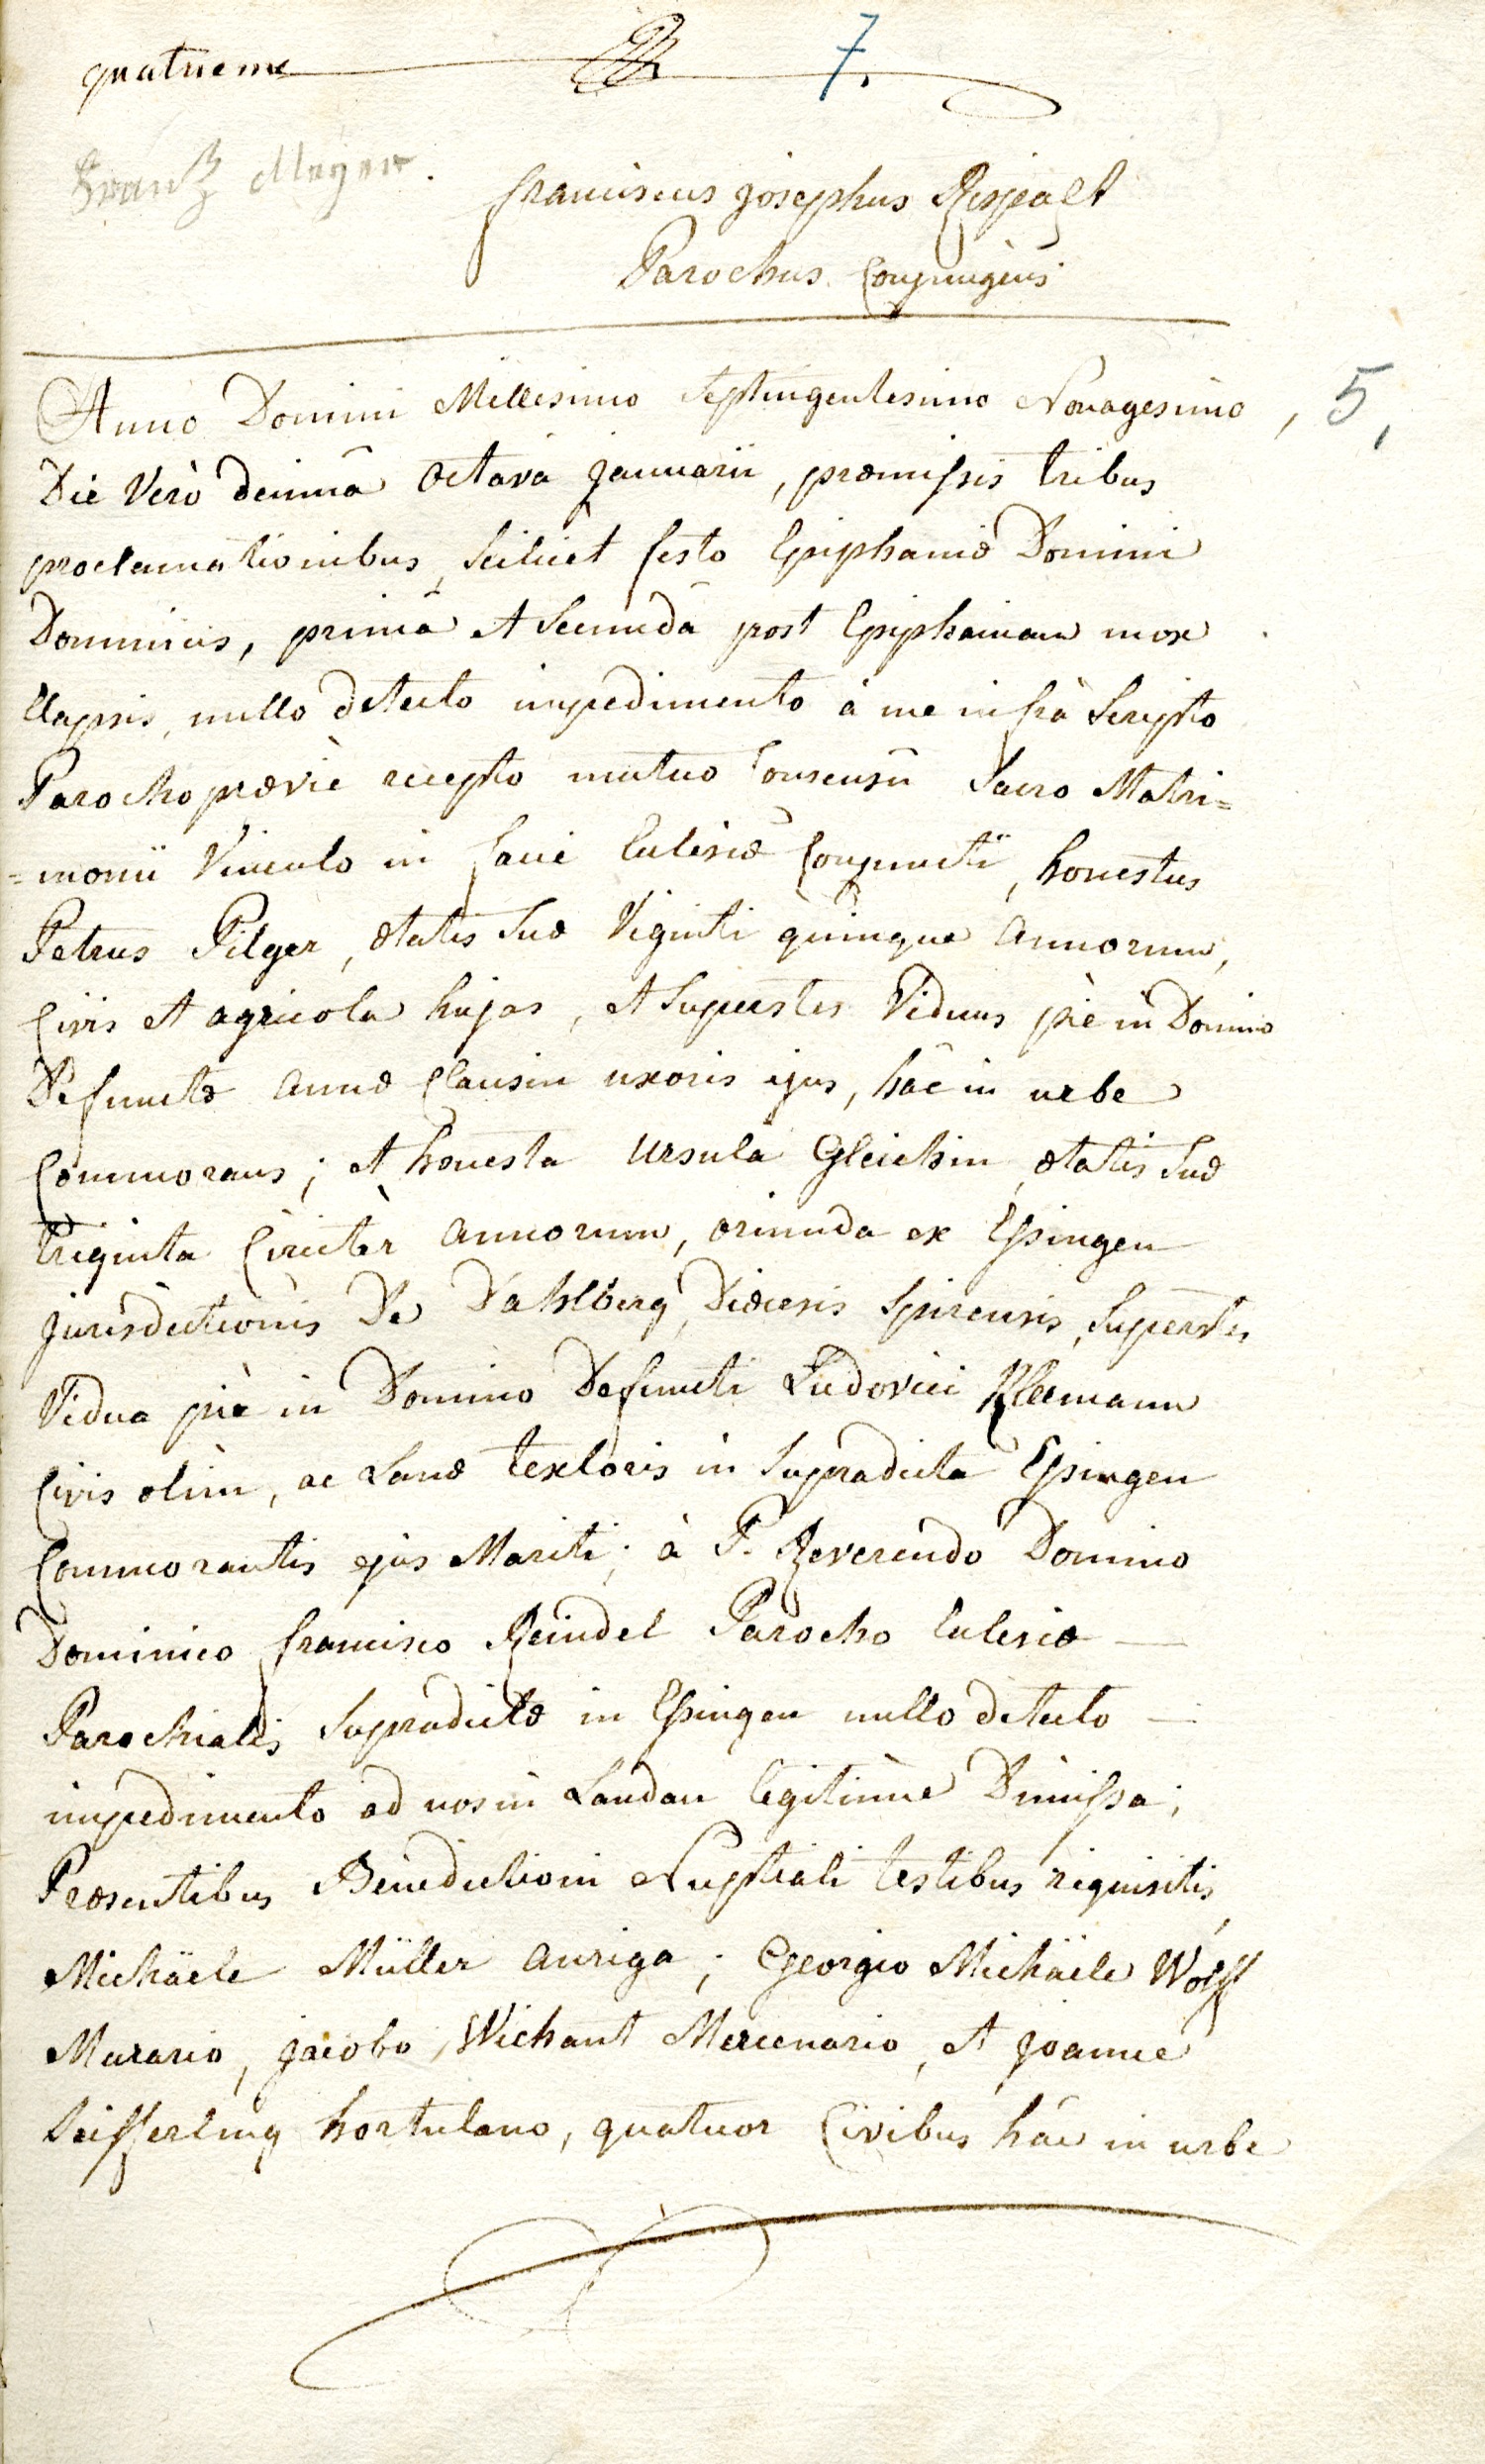 quatrieme 7.
Frantz Meyer.
franciscus josephus
Parochus Conjungens
Anno Domini Millesimo Septingentesimo Nonagesimo, 5,
Die Verò decimâ octavâ januarii, præmissis tribus
proclamationibus, scilicet festo Epiphaniæ Domini
Dominicis, primâ et Secundâ post Epiphaniam mox
Elapsis, nullo detecto impedimento à me infrà Scripto
Parocho prævie recepto mutuo Consensû Sacro Matri=
=monii Vinculo in facie Ecclesiæ Conjuncti, honestus
Petrus Pilger, ætatis Suæ Viginti quinque annorum,
Civis et agricola hujas, et Superstes Viduus piè in Domino
Defunctæ annæ Clausin uxoris ejus, hâc in urbe
Commorans; et honesta Ursula Gleichin, ætatis Suæ
triginta Circitèr annorum, oriunda ex Essingen
jurisdictionis De Dahlberg, Diœcesis Spirensis, Superstes
Vidua piè in Domino Defuncti Ludovici Kleemann
Civis olim, ac Lanæ textoris in Supradicta Essingen
Commorantis ejus Mariti; à P. Reverendo Domino
Dominico francisco Reindel Parocho Ecclesiæ
Parochialis Supradictæ in Essingen nullo detecto
impedimento ad nos in Landau legitimè Dimissa;
Præsentibus Benedictioni Nuptiali testibus requisitis,
Michäele Müller auriga; Georgio Michäele Wolff
Murario, jacobo Wichant Mercenario, et joanne
Seifferling hortulano, quatuor Civibus hâc in urbe